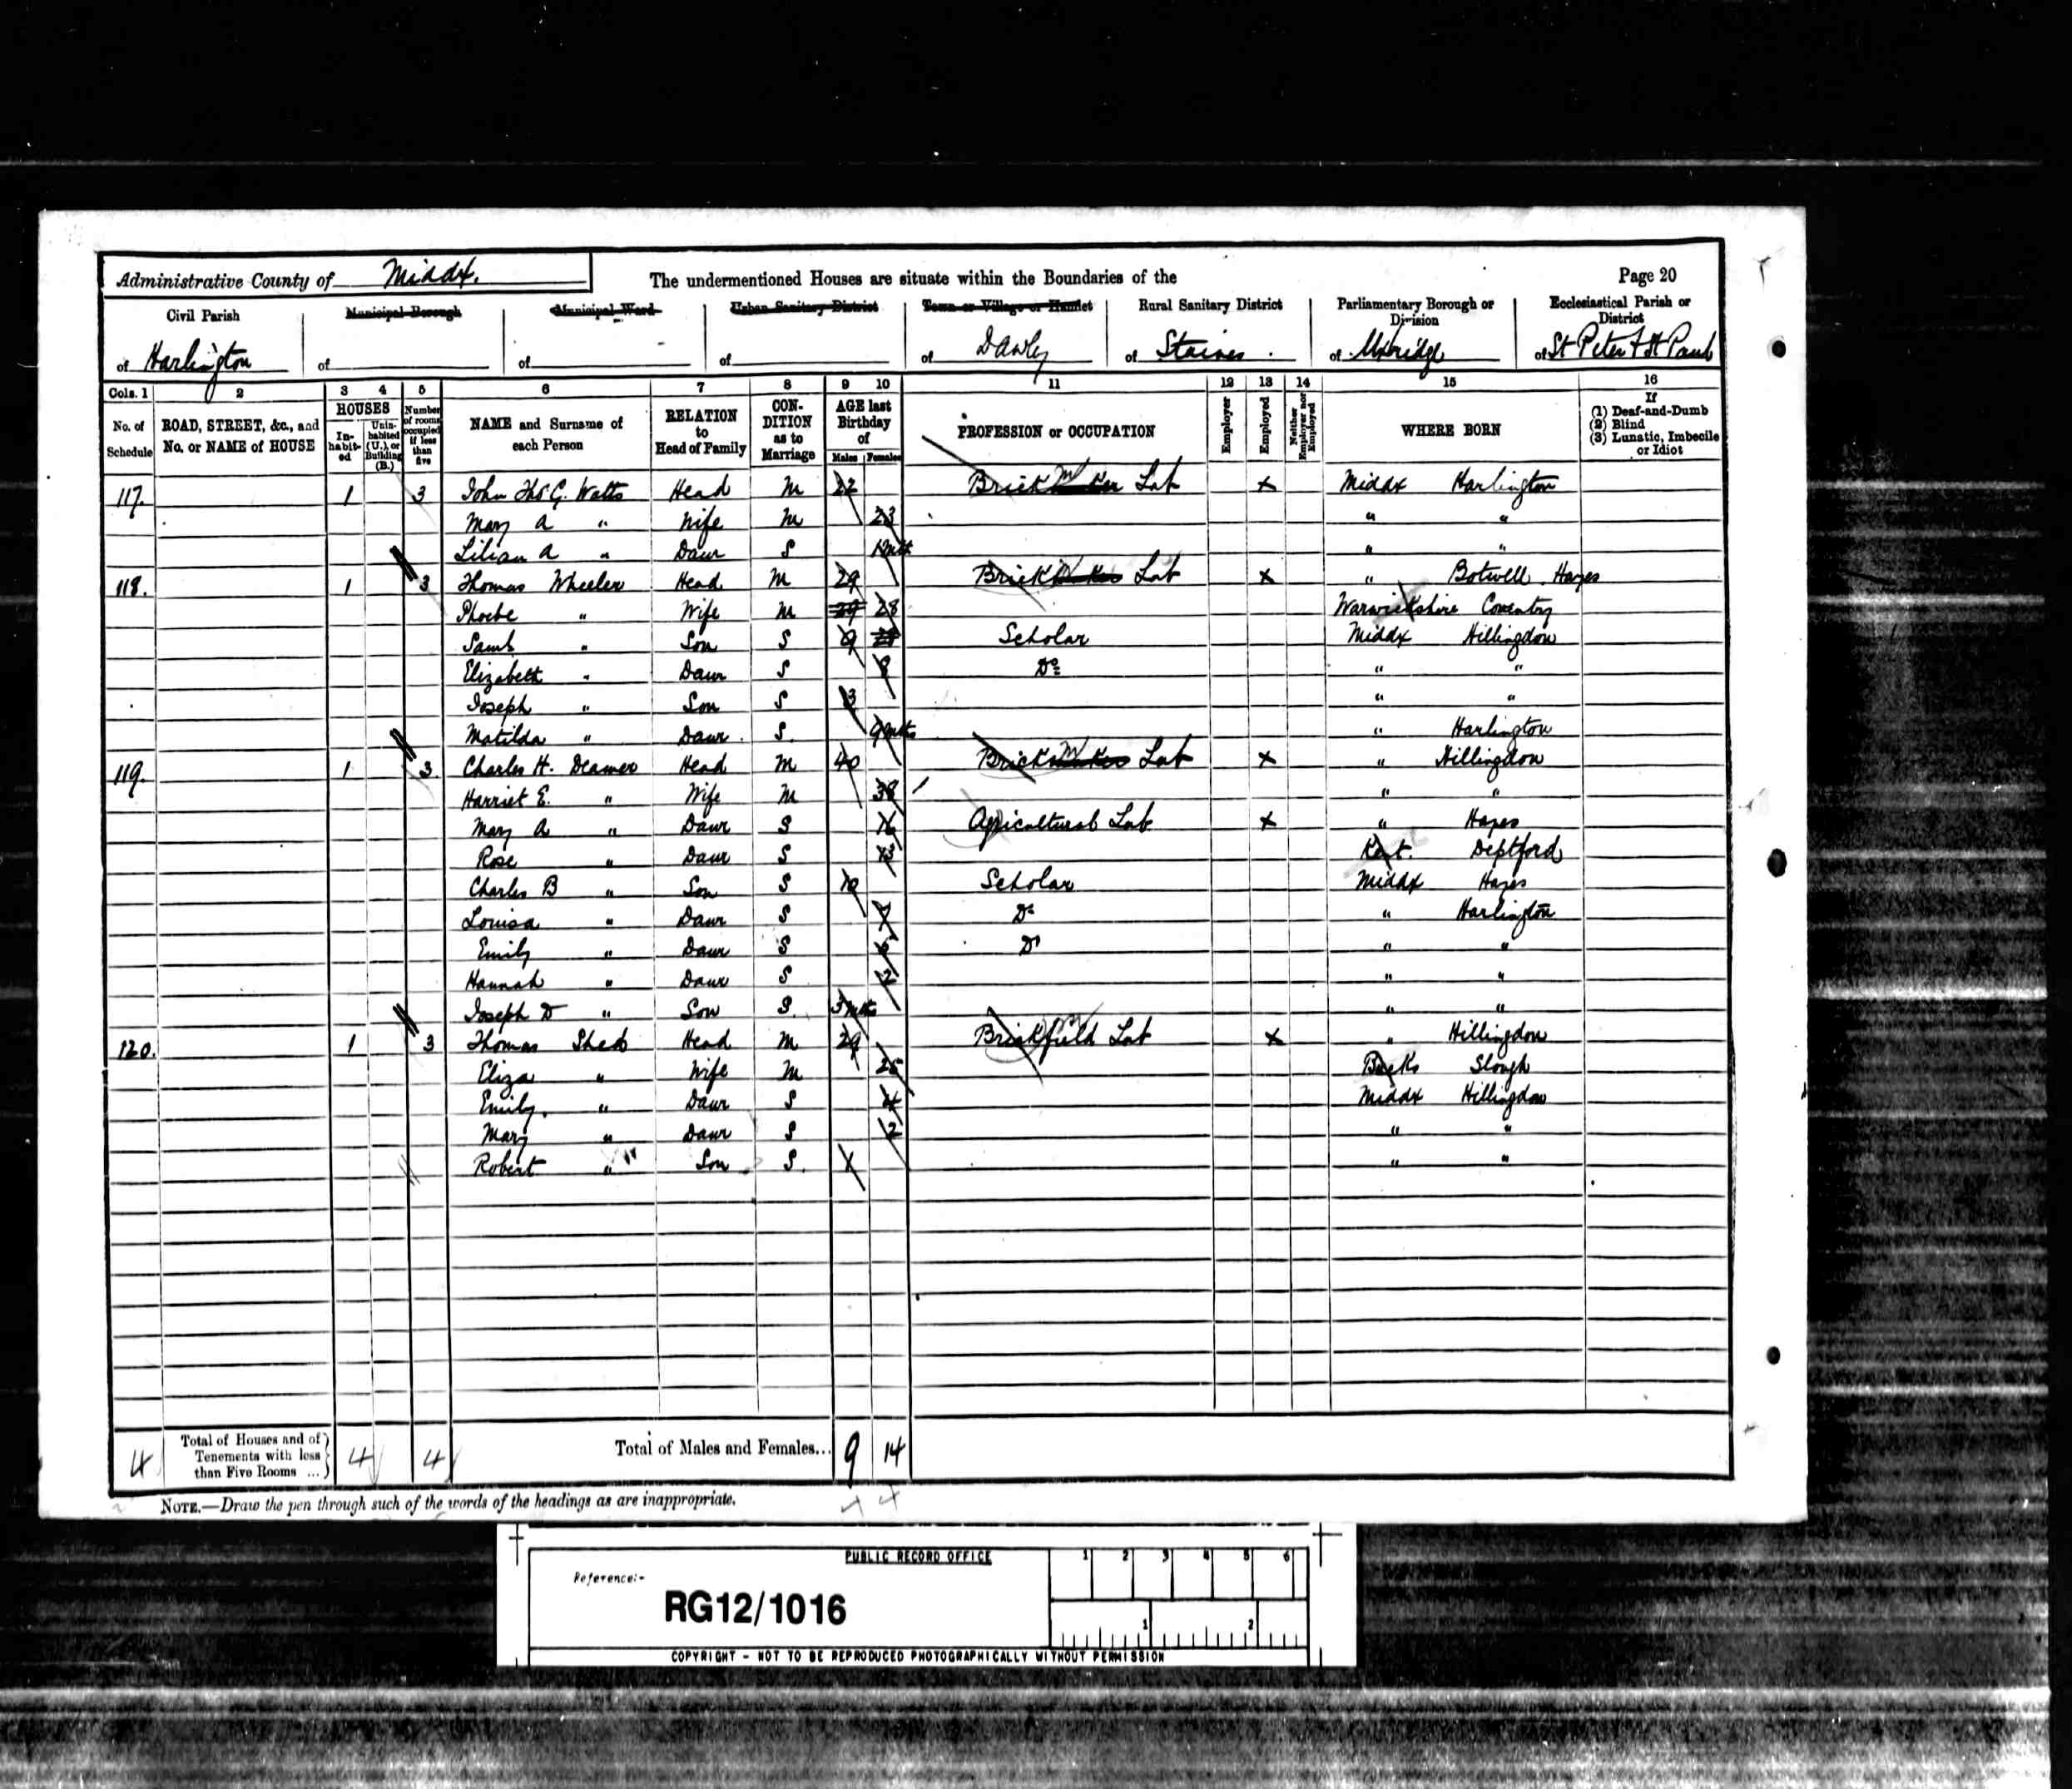 Administrative County of Middx. The undermentioned Houses are situate within the Boundaries of the Page 20
Civil Parish Municipal Borough Municipal Ward Urban Sanitary District Town or Village or Hamlet Rural Sanitary District Parliamentary Borough or Division Ecclesiastical Parish or District
of Harlington of of of of Dawly of Staines. of Uxbridge of St Peter & St Paul
Cols. 1 2 3 4 5 6 7 8 9 10 11 12 13 14 15 16
No. of Schedule ROAD, STREET, &c., and No. or NAME of HOUSE HOUSES In-habit-ed Unin-habited (U.), or Building (B.) Number of rooms occupied if less than five NAME and Surname of each Person RELATION to Head of Family CON-DITION as to Marriage AGE last Birthday of Males Females PROFESSION or OCCUPATION Employer Employed Neither Employer nor Employed WHERE BORN If (1) Deaf-and-Dumb (2) Blind (3) Lunatic, Imbecile or Idiot
117. 1 3 John Thos G. Watts Head M 22 Brickmaker Lab x Middx Harlington
Mary A " Wife M 23 " "
Lilian A " Daur S 1 mth " "
118. 1 3 Thomas Wheeler Head M 29 Brickmaker Lab x " Botwell. Hayes
Phoebe " Wife M 29 28 Warwickshire Coventry
Saml " Son S 9 28 Scholar Middx Hillingdon
Elizabeth " Daur S 8 Do " "
Joseph " Son S 3 " "
Matilda " Daur. S. 9 mths " Harlington
119. 1 3 Charles H. Deamer Head M 40 Brickmaker Lab x " Hillingdon
Harriet E. " Wife M 38 " "
Mary A " Daur S 16 Agricultural Lab x " Hayes
Rose " Daur S 13 Kent. Deptford
Charles B " Son S 10 Scholar Middx Hayes
Louisa " Daur S 7 Do " Harlington
Emily " Daur S 6 Do " "
Hannah " Daur S 2 " "
Joseph D " Son S. 3 mths " "
120. 1 3 Thomas Head M 29 Brickfield Lab x " Hillingdon
Eliza " Wife M 25 Bucks Slough
Emily. " Daur S 4 Middx Hillingdon
Mary " Daur S 2 " "
Robert " Son S. 1 " "
4 Total of Houses and of Tenements with less than Five Rooms ... 4 4 Total of Males and Females... 9 14
NOTE.—Draw the pen through such of the words of the headings as are inappropriate.
PUBLIC RECORD OFFICE 1 2 3 4 5 6
Reference:-
RG12/1016
1 2
COPYRIGHT - NOT TO BE REPRODUCED PHOTOGRAPHICALLY WITHOUT PERMISSION